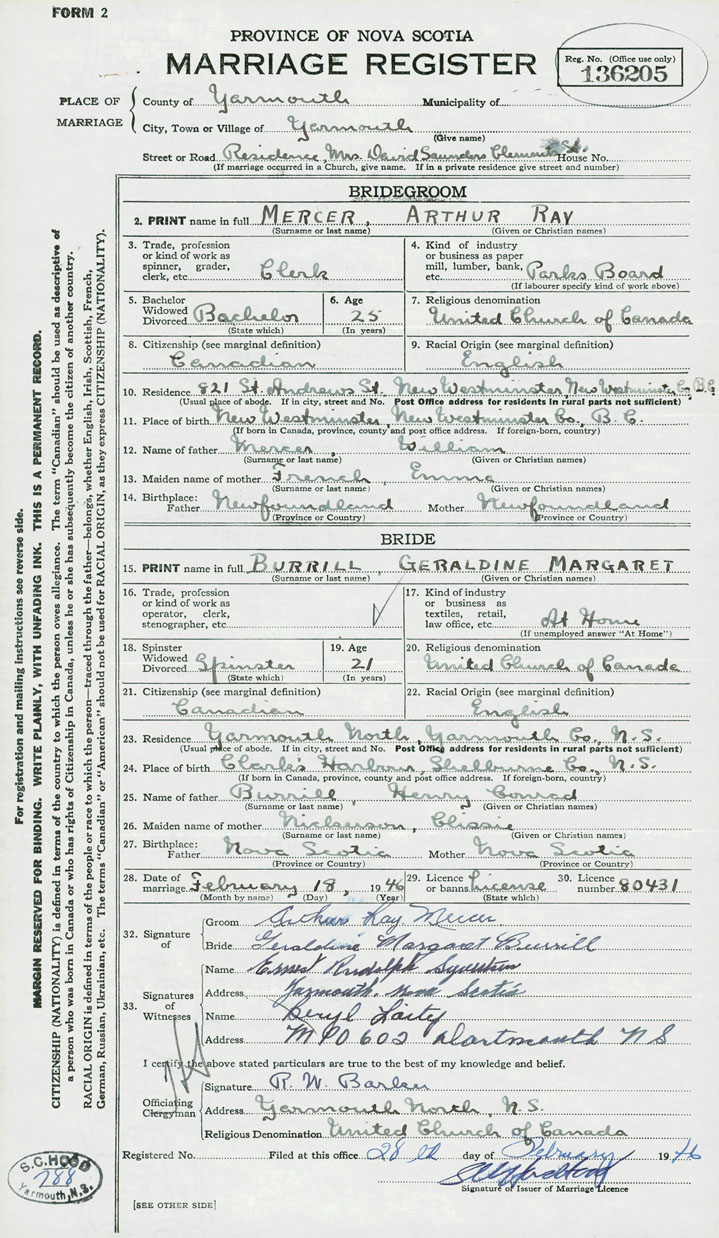 FORM 2
PROVINCE OF NOVA SCOTIA
MARRIAGE REGISTER
Reg. No. (Office use only)
136205
PLACE OF MARRIAGE
County of Yarmouth Municipality of
City, Town or Village of Yarmouth
(Give name)
Street or Road Residence, Mrs. David Saunders Clements St. House No.
(If marriage occurred in a Church, give name. If in a private residence give street and number)
BRIDEGROOM
2. PRINT name in full MERCER, ARTHUR RAY
(Surname or last name) (Given or Christian names)
3. Trade, profession or kind of work as spinner, grader, clerk, etc. Clerk
4. Kind of industry or business as paper mill, lumber, bank, etc. Parks Board
(If labourer specify kind of work above)
5. Bachelor Widowed Divorced Bachelor
(State which)
6. Age 25
(In years)
7. Religious denomination
United Church of Canada
8. Citizenship (see marginal definition)
Canadian
9. Racial Origin (see marginal definition)
English
10. Residence 821 St. Andrews St. New Westminster, New Westminster Co. B.C.
(Usual place of abode. If in city, street and No. Post Office address for residents in rural parts not sufficient)
11. Place of birth New Westminster, New Westminster Co., B.C.
(If born in Canada, province, county and post office address. If foreign-born, country)
12. Name of father Mercer, William
(Surname or last name) (Given or Christian names)
13. Maiden name of mother French, Emma
(Surname or last name) (Given or Christian names)
14. Birthplace: Father Newfoundland Mother Newfoundland
(Province or Country) (Province or Country)
BRIDE
15. PRINT name in full BURRILL, GERALDINE MARGARET
(Surname or last name) (Given or Christian names)
16. Trade, profession or kind of work as operator, clerk, stenographer, etc
17. Kind of industry or business as textiles, retail, law office, etc At Home
(If unemployed answer "At Home")
18. Spinster Widowed Divorced Spinster
(State which)
19. Age 21
(In years)
20. Religious denomination
United Church of Canada
21. Citizenship (see marginal definition)
Canadian
22. Racial Origin (see marginal definition)
English
23. Residence Yarmouth North, Yarmouth Co., N.S.
(Usual place of abode. If in city, street and No. Post Office address for residents in rural parts not sufficient)
24. Place of birth Clark's Harbour, Shelburne Co., N.S.
(If born in Canada, province, county and post office address. If foreign-born, country)
25. Name of father Burrill, Henry Conrad
(Surname or last name) (Given or Christian names)
26. Maiden name of mother Nickerson, Clissie
(Surname or last name) (Given or Christian names)
27. Birthplace: Father Nova Scotia Mother Nova Scotia
(Province or Country) (Province or Country)
28. Date of marriage February 18, 1946
(Month by name) (Day) (Year)
29. Licence or banns License
(State which)
30. Licence number 80431
32. Signature of
Groom Arthur Ray Mercer
Bride Geraldine Margaret Burrill
33. Signatures of Witnesses
Name Ernest Rudolph
Address Yarmouth, Nova Scotia
Name Beryl Laity
Address MPO 602 Dartmouth N S
I certify the above stated particulars are true to the best of my knowledge and belief.
Officiating Clergyman
Signature R. W. Barker
Address Yarmouth North, N.S.
Religious Denomination United Church of Canada
Registered No. Filed at this office 28 th day of February 1946
Signature of Issuer of Marriage Licence
[SEE OTHER SIDE]
S.C. HOOD
288
Yarmouth, N.S.
For registration and mailing instructions see reverse side.
MARGIN RESERVED FOR BINDING. WRITE PLAINLY, WITH UNFADING INK. THIS IS A PERMANENT RECORD.
CITIZENSHIP (NATIONALITY) is defined in terms of the country to which the person owes allegiance. The term "Canadian" should be used as descriptive of
a person who was born in Canada or who has rights of Citizenship in Canada, unless he or she has subsequently become the citizen of another country.
RACIAL ORIGIN is defined in terms of the people or race to which the person—traced through the father—belongs, whether English, Irish, Scottish, French,
German, Russian, Ukrainian, etc. The terms "Canadian" or "American" should not be used for RACIAL ORIGIN, as they express CITIZENSHIP (NATIONALITY).